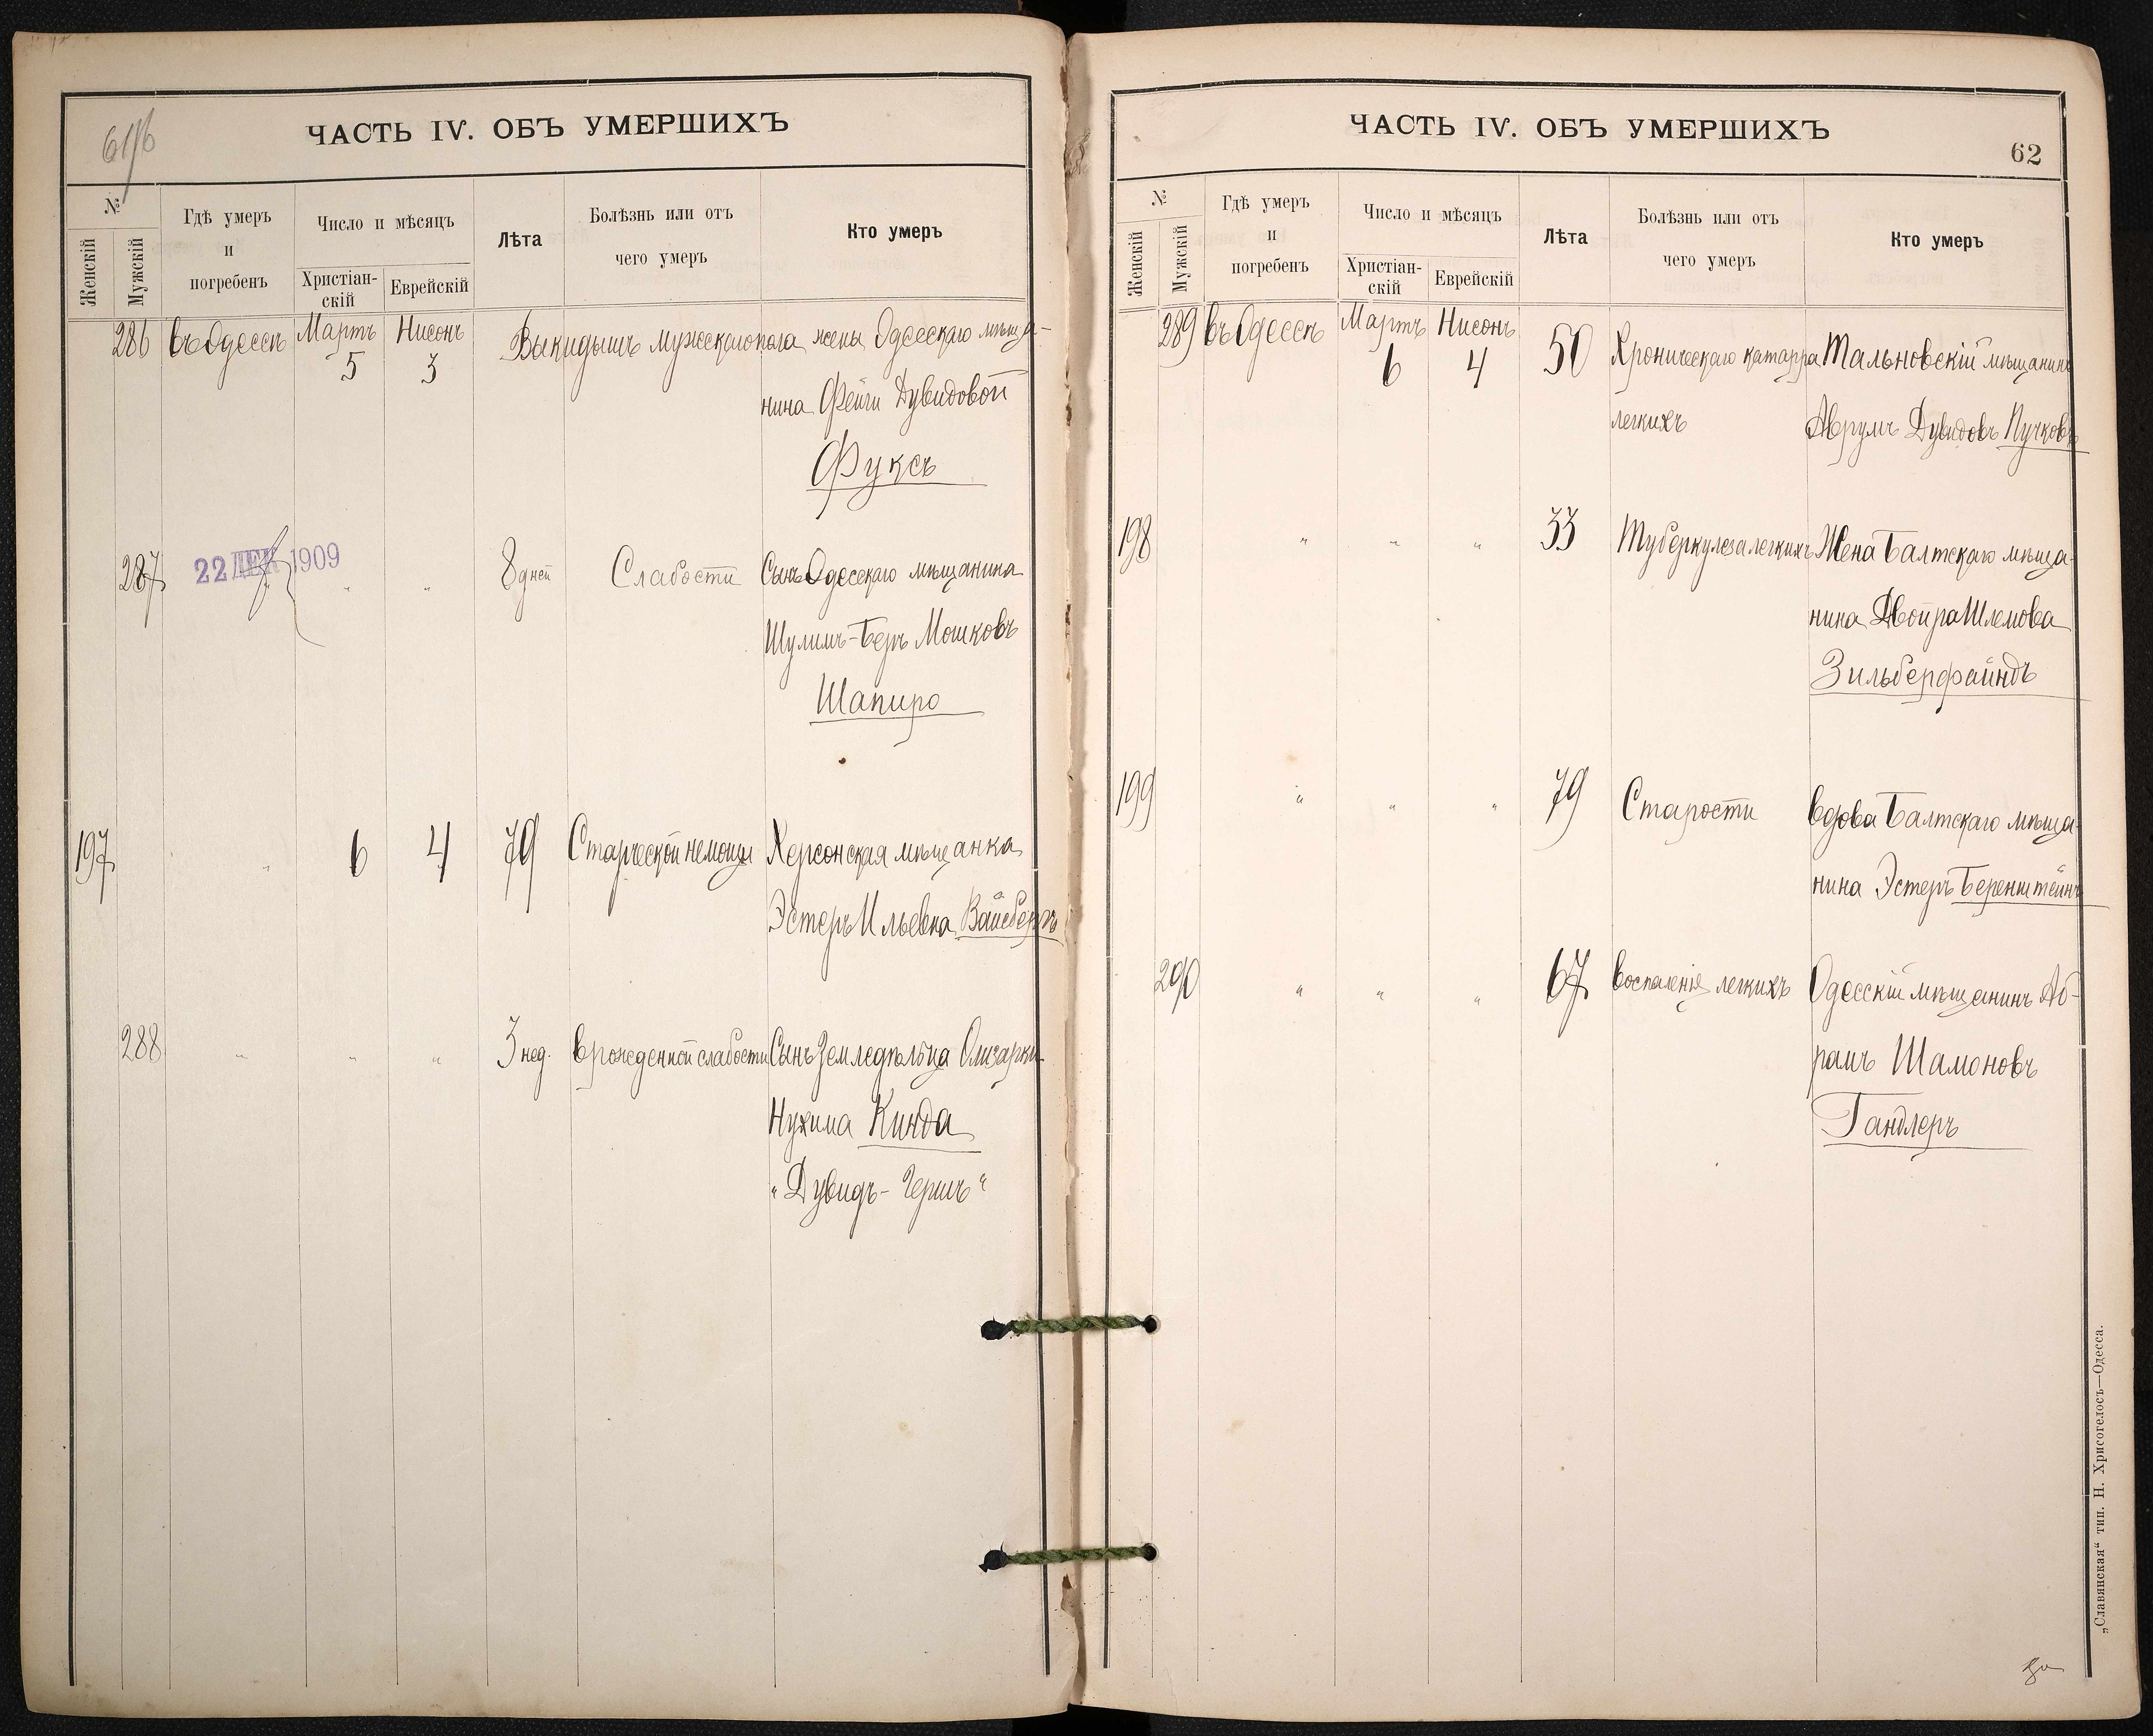 ЧАСТЬ IV. ОБЪ УМЕРШИХЪ
№
Женскій
Мужскій
Гдѣ умеръ
и
погребенъ
Число и мѣсяцъ
Христіан-
скій
Еврейскій
Лѣта
Болѣзнь или отъ
чего умеръ
Кто умеръ
286 въ Одессѣ Мартъ Нисонъ Выкидышъ мужскаго пола жены Одесскаго мѣща-
5 3 нина Фейги Дувидовой
Фуксъ
287 22 ДЕК 1909 " " 8 дней Слабости Сынъ Одесскаго мѣщанина
Шулимъ-Беръ Мошковъ
Шапиро
197 " 6 4 79 Старческой немощи Херсонская мѣщанка
Эстеръ Ильевна Вайсбергъ
288 " " " 3 нед. Врожденной слабости Сынъ Земледѣльца
Нухима Кинда
"Дувидъ-Гершъ"
ЧАСТЬ IV. ОБЪ УМЕРШИХЪ
62
№
Женскій
Мужскій
Гдѣ умеръ
и
погребенъ
Число и мѣсяцъ
Христіан-
скій
Еврейскій
Лѣта
Болѣзнь или отъ
чего умеръ
Кто умеръ
289 въ Одессѣ Мартъ Нисонъ 50 Хроническаго катарра Тальновскій мѣщанинъ
6 4
легкихъ Аврумъ Дувидовъ Пучковъ
198 " " " 33 Туберкулеза легкихъ Жена Балтскаго мѣща-
нина Двойра Шлемова
Зильберфайндъ
199 " " " 79 Старости Вдова Балтскаго мѣща-
нина Эстеръ Беренштейнъ
290 " " " 67 Воспаленія легкихъ Одесскій мѣщанинъ Аб-
рамъ Шамоновъ
Гандлеръ
„Славянская“ тип. Н. Хрисогелосъ—Одесса.